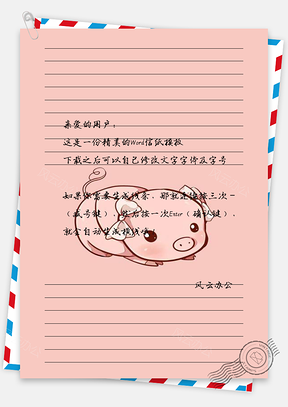 亲爱的用户：
这是一份精美的Word信纸模板
下载之后可以自己修改文字字体及字号
如果你需要生成线条，那就是连按三次-
（减号键），然后按一次Enter（确认键），
就会自动生成横线啦
风云办公